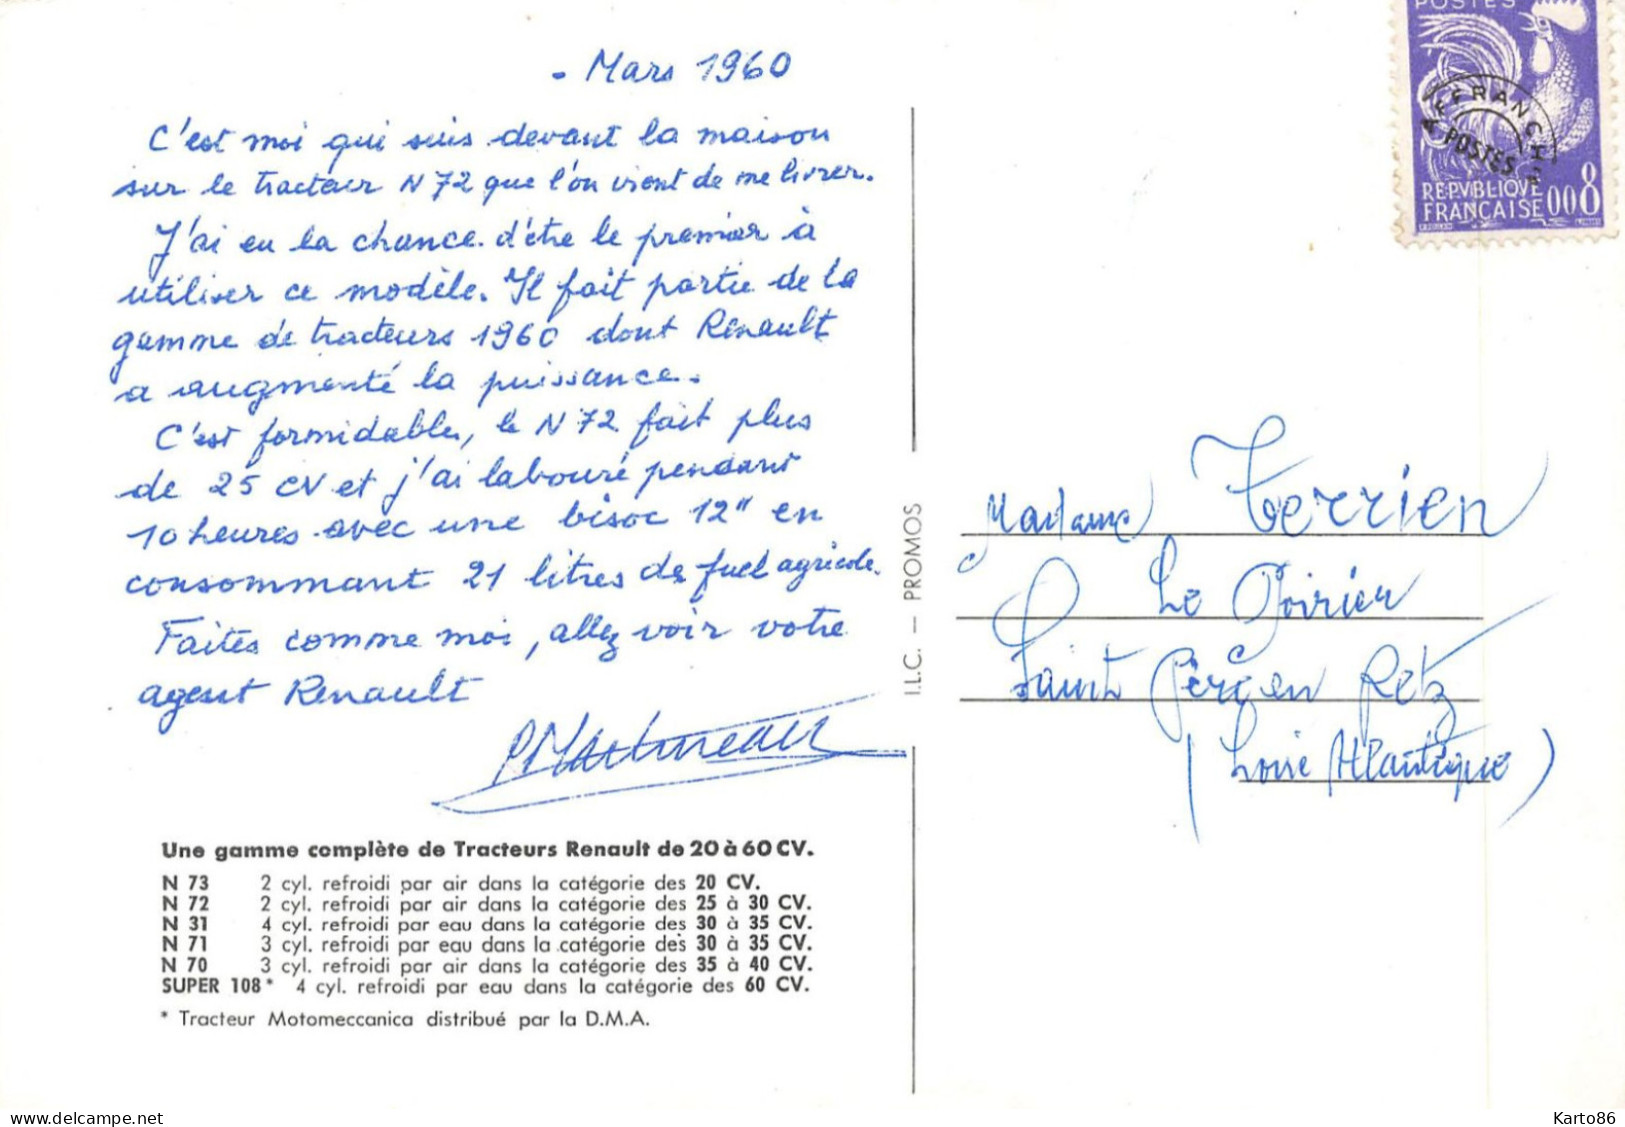 - Mars 1960
C'est moi qui suis devant la maison
sur le tracteur N 72 que l'on vient de me livrer.
J'ai eu la chance d'être le premier à
utiliser ce modèle. Il fait partie de la
gamme de tracteurs 1960 dont Renault
a augmenté la puissance.
C'est formidable, le N 72 fait plus
de 25 CV et j'ai labouré pendant
10 heures avec une bisoc 12" en
consommant 21 litres de fuel agricole.
Faites comme moi, allez voir votre
agent Renault
Une gamme complète de Tracteurs Renault de 20 à 60 CV.
N 73 2 cyl. refroidi par air dans la catégorie des 20 CV.
N 72 2 cyl. refroidi par air dans la catégorie des 25 à 30 CV.
N 31 4 cyl. refroidi par eau dans la catégorie des 30 à 35 CV.
N 71 3 cyl. refroidi par eau dans la catégorie des 30 à 35 CV.
N 70 3 cyl. refroidi par air dans la catégorie des 35 à 40 CV.
SUPER 108* 4 cyl. refroidi par eau dans la catégorie des 60 CV.
* Tracteur Motomeccanica distribué par la D.M.A.
I.L.C. — PROMOS
POSTES
AFFRANCHts
POSTES
REPVBLIQVE
FRANÇAISE 008
Madame Terrien
Le Poirier
Saint Père en Retz
(Loire Atlantique)
www.delcampe.net
Karto86